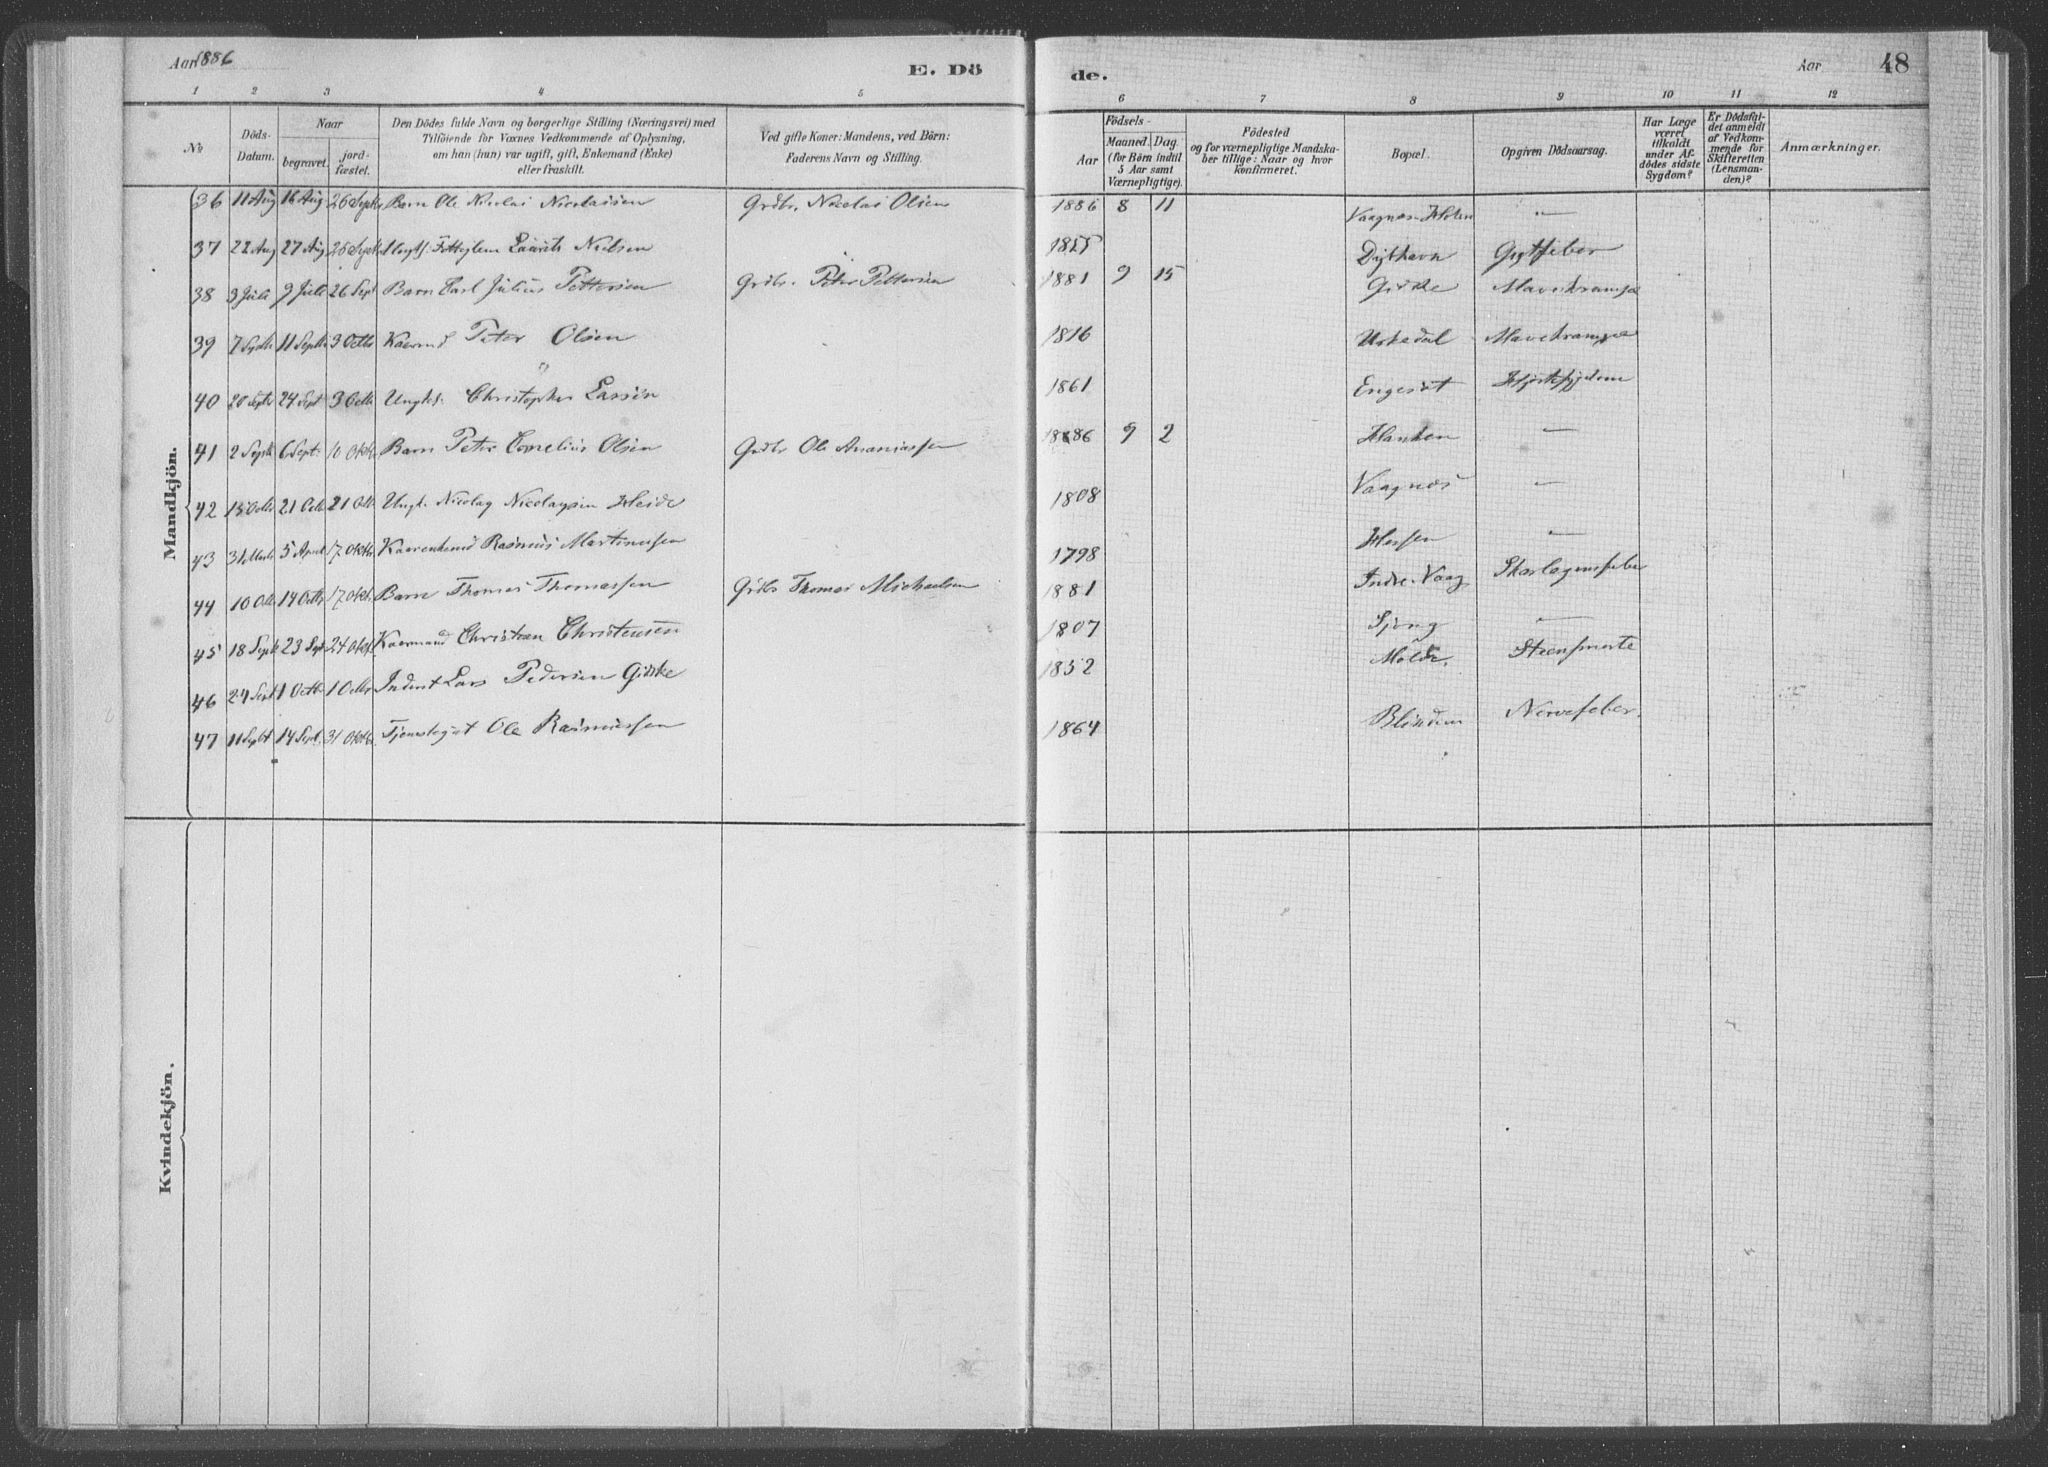 Aar 1886
E. Dö
de.
Aar
48
1 2 3 4 5 6 7 8 9 10 11 12
No
Döds-Datum.
Naar
begravet.
jord-fæstet.
Den Dödes fulde Navn og borgerlige Stilling (Næringsvei) med
Tilföiende for Voxnes Vedkommende af Oplysning,
om han (hun) var ugift, gift, Enkemand (Enke)
eller fraskilt.
Ved gifte Koner: Mandens, ved Börn:
Faderens Navn og Stilling.
Födsels-
Aar
Maaned. Dag.
(for Börn indtil
5 Aar samt
Værnepligtige).
Födested
og for værnepligtige Mandska-
ber tillige: Naar og hvor
konfirmeret.
Bopæl.
Opgiven Dödsaarsag.
Har Læge
været
tilkaldt
under Af-
dödes sidste
Sygdom?
Er Dödsfal-
det anmeldt
af Vedkom-
mende for
Skifteretten
(Lensman-
den)?
Anmærkninger.
Mandkjön.
36 11 Aug 16 Aug 26 Septr Barn Ole Nicolai Nicolaisen Grdbr. Nicolai Olsen 1886 8 11 Vaagnes Holen —
37 22 Aug 27 Aug 26 Sept Laurits Nielsen 1855 Gigtfeber
38 3 Juli 9 Juli 26 Sept Barn Carl Julius Pettersen Grdbr. Peter Pettersen 1881 9 15 Giske Mavekrampe
39 7 Septb 11 Septb 3 Octbr Kaarmd Peter Olsen 1816 Urkedal Mavekrampe
40 20 Septb 24 Sept 3 Octb Ungk. Christopher Larsen 1861 Engeset
41 2 Septb 6 Sept. 10 Oktbr Barn Peter Cornelius Olsen Grdbr Ole Ananiassen 1886 9 2 Hanken —
42 15 Octb 21 Octb 21 Octb. Ungk. Nicolay Nicolaysen Heide 1808 Vaagnes —
43 31 Marts 5 April 17 Oktbr Kaarenkemd Rasmus Martinussen 1798 —
44 10 Octb 14 Octbr 17 Oktb. Barn Thomas Thomassen Grdbr Thomas Michaelsen 1881 Indre-Vaag Skarlagensfeber
45 18 Septb 23 Sept 24 Oktbr Kaarmand Christian Christensen 1807 Sjong —
46 24 Sept 1 Octbr 1 Octbr Inderst Lars Pedersen Giske 1852 Molde. Steensmerte
47 11 Septbt 14 Sept. 31 Oktbr Tjenestegut Ole Rasmussen 1864 Blindum Nervefeber.
Kvindekjön.